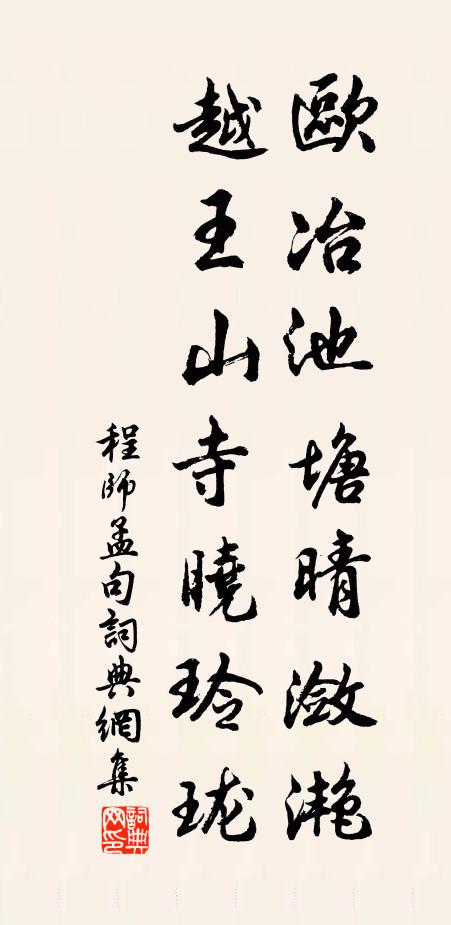 歐冶池塘晴瀲滟
越王山寺曉玲珑
程師孟句詞典網集
詞典網印